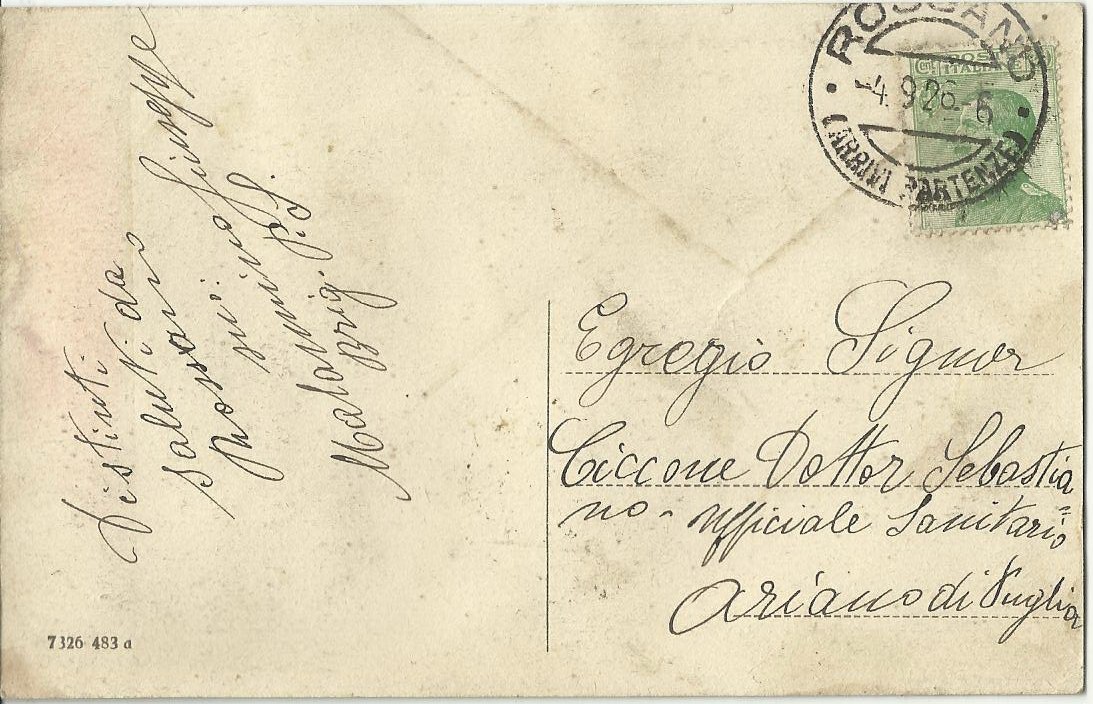 ROSSANO
-4.9.26-6
(ARRIVI PARTENZE)
POSTE
ITALIANE
Distinti
saluti da
Giuseppe
P.S.
Brig.
Egregio Signor
Ciccone Dottor Sebastia=
no - Ufficiale Sanitario
Ariano di Puglia
7326 483 a